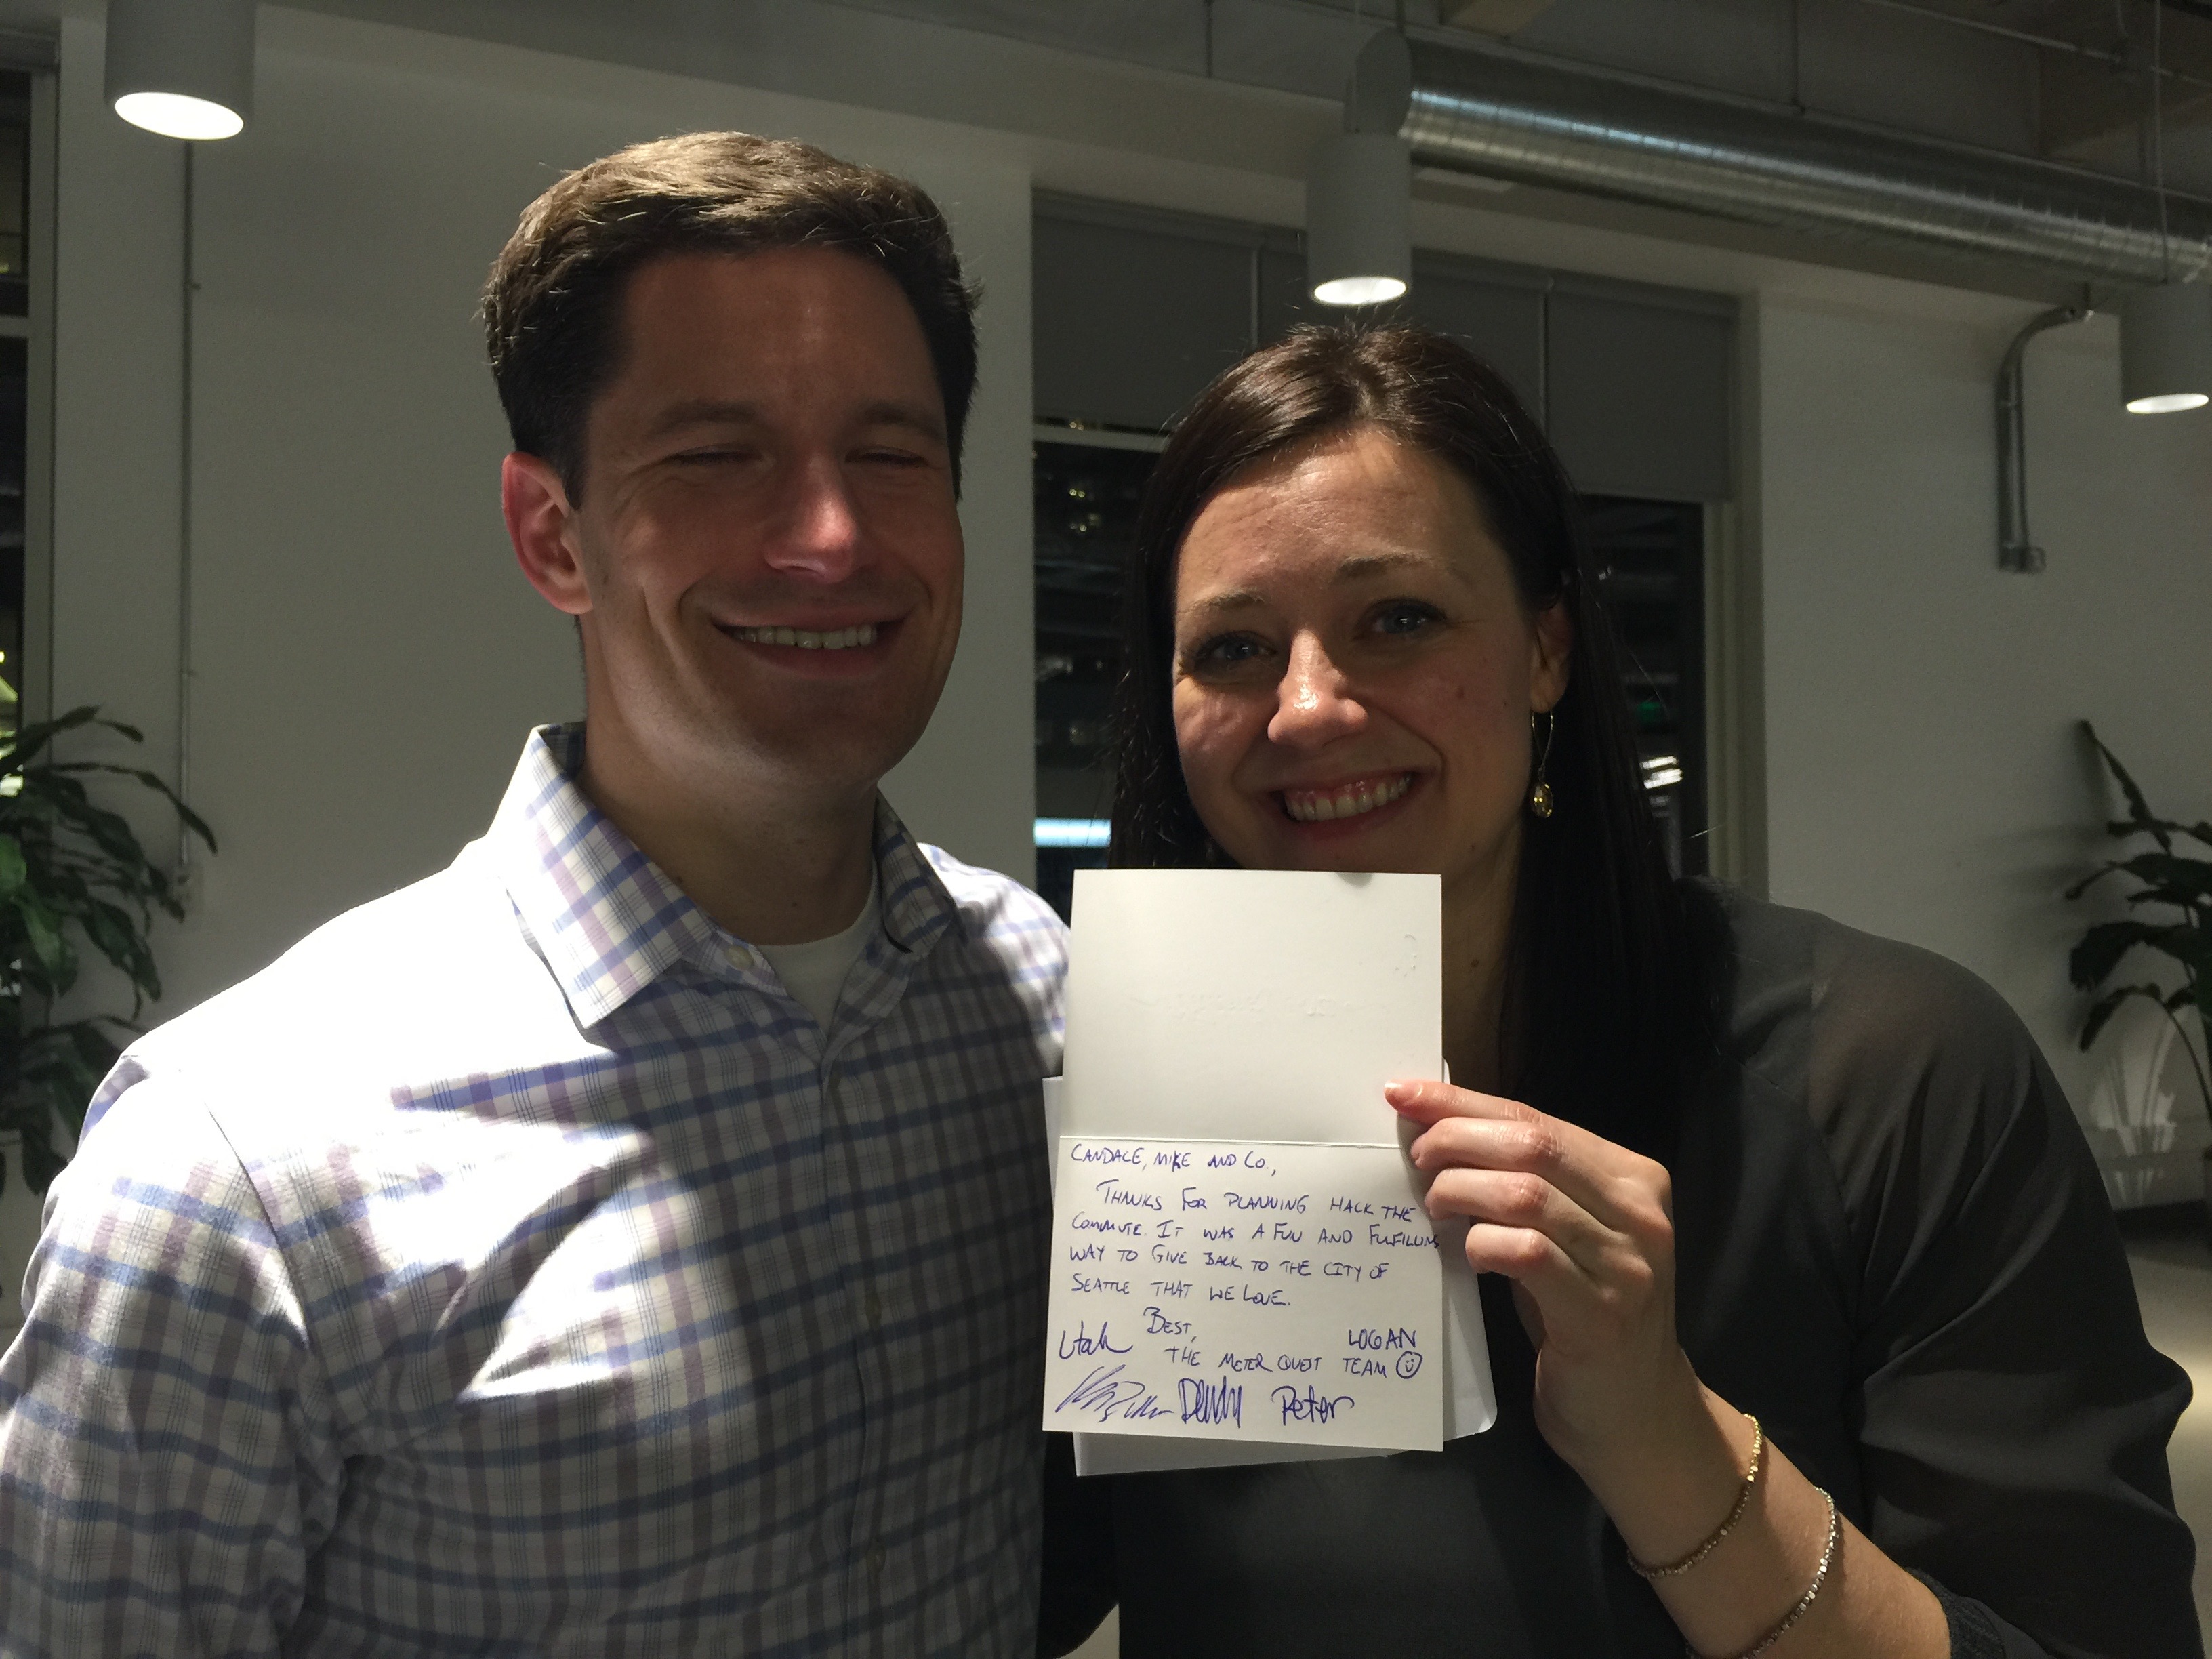 CANDACE, MIKE AND CO.,
THANKS FOR PLANNING HACK THE
COMMUTE. IT WAS A FUN AND FULFILLING
WAY TO GIVE BACK TO THE CITY OF
SEATTLE THAT WE LOVE.
BEST,
Utah LOGAN
THE METER QUEST TEAM
Peter